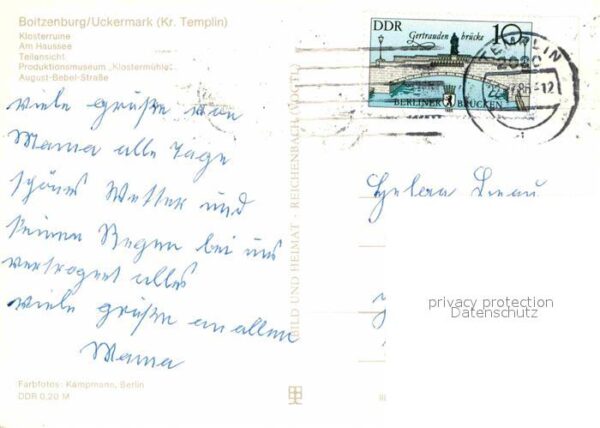 Boitzenburg/Uckermark (Kr. Templin)
Klosterruine
Am Haussee
Teilansicht
Produktionsmuseum „Klostermühle"
August-Bebel-Straße
viele grüße von
Mama alle Tage
schönes Wetter und
keinen Regen bei uns
vertrognet alles
viele grüße an allen
Mama
Farbfotos: Kampmann, Berlin
DDR 0,20 M
BILD UND HEIMAT · REICHENBACH (VOGTL)
DDR
10
Gertrauden brücke
BERLINER BRÜCKEN
TEMPLIN
2090
privacy protection
Datenschutz